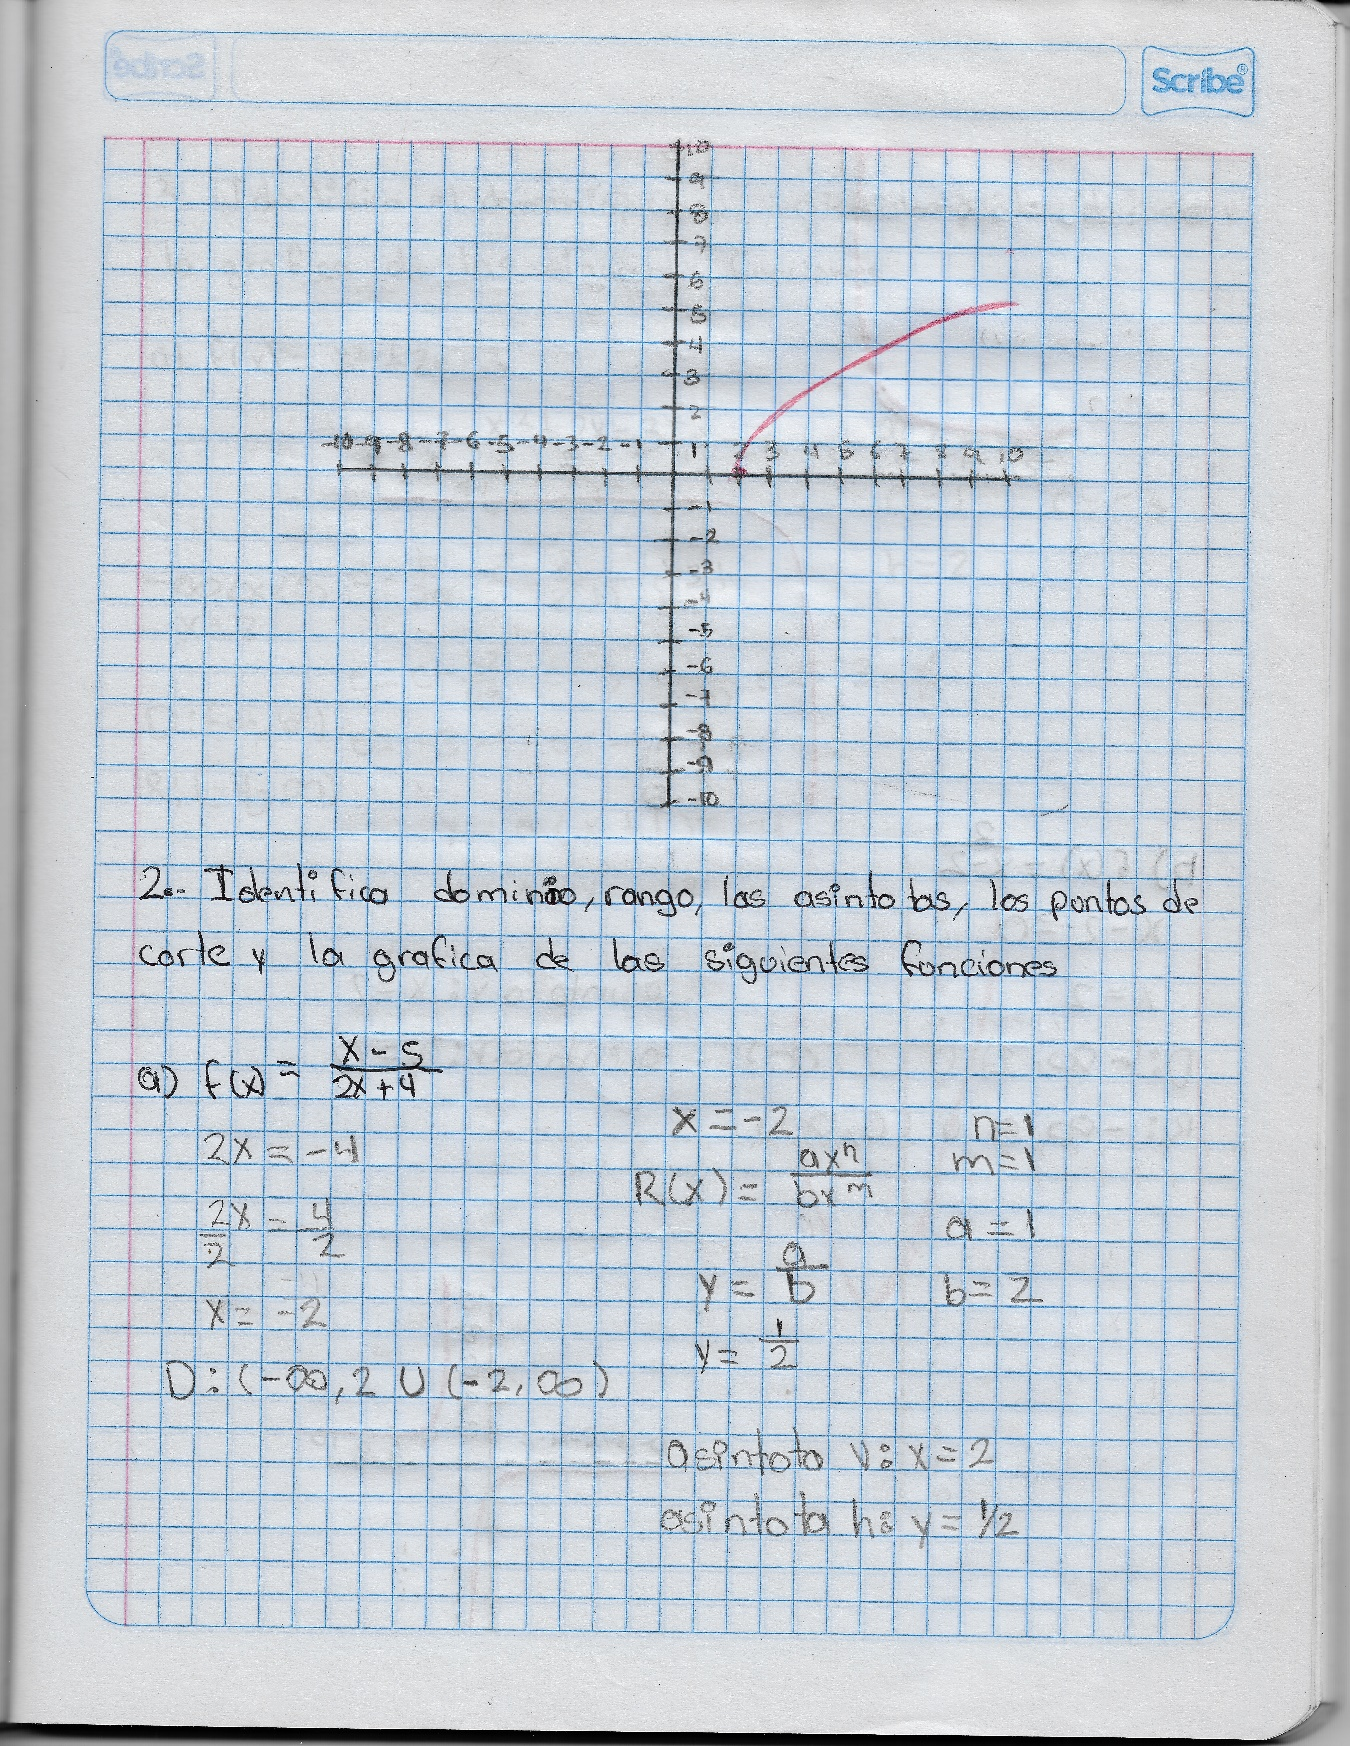 Scribe®
10
9
8
7
6
5
4
3
2
-10 -9 -8 -7 -6 -5 -4 -3 -2 -1 1 2 3 4 5 6 7 8 9 10
-1
-2
-3
-4
-5
-6
-7
-8
-9
-10
2.- Identifica dominio, rango, las asintotas, los puntos de
corte y la grafica de las siguientes funciones
a) f(x) = x - 5 / 2x + 4
2x = -4
2x/2 = 4/2
x = -2
D: (-∞, 2 U (-2, ∞)
x = -2
n=1
m=1
R(x) = ax^n / bx^m
a = 1
y = a/b
b = 2
y = 1/2
asintota v: x = 2
asintota h: y = 1/2